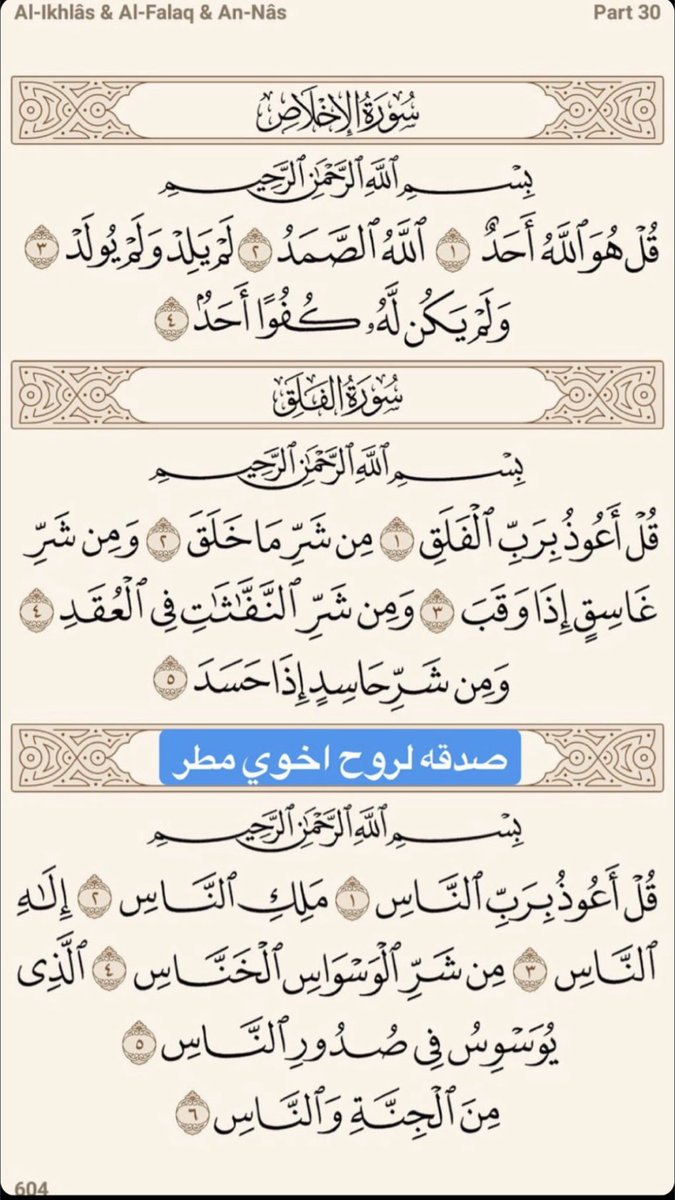 Al-Ikhlâs & Al-Falaq & An-Nâs
Part 30
سُورَةُ الإِخْلَاصِ
بِسْمِ ٱللَّهِ ٱلرَّحْمَٰنِ ٱلرَّحِيمِ
قُلْ هُوَ ٱللَّهُ أَحَدٌ ١ ٱللَّهُ ٱلصَّمَدُ ٢ لَمْ يَلِدْ وَلَمْ يُولَدْ ٣
وَلَمْ يَكُن لَّهُۥ كُفُوًا أَحَدٌۢ ٤
سُورَةُ الفَلَقِ
بِسْمِ ٱللَّهِ ٱلرَّحْمَٰنِ ٱلرَّحِيمِ
قُلْ أَعُوذُ بِرَبِّ ٱلْفَلَقِ ١ مِن شَرِّ مَا خَلَقَ ٢ وَمِن شَرِّ
غَاسِقٍ إِذَا وَقَبَ ٣ وَمِن شَرِّ ٱلنَّفَّٰثَٰتِ فِى ٱلْعُقَدِ ٤
وَمِن شَرِّ حَاسِدٍ إِذَا حَسَدَ ٥
صدقه لروح اخوي مطر
بِسْمِ ٱللَّهِ ٱلرَّحْمَٰنِ ٱلرَّحِيمِ
قُلْ أَعُوذُ بِرَبِّ ٱلنَّاسِ ١ مَلِكِ ٱلنَّاسِ ٢ إِلَٰهِ
ٱلنَّاسِ ٣ مِن شَرِّ ٱلْوَسْوَاسِ ٱلْخَنَّاسِ ٤ ٱلَّذِى
يُوَسْوِسُ فِى صُدُورِ ٱلنَّاسِ ٥
مِنَ ٱلْجِنَّةِ وَٱلنَّاسِ ٦
604